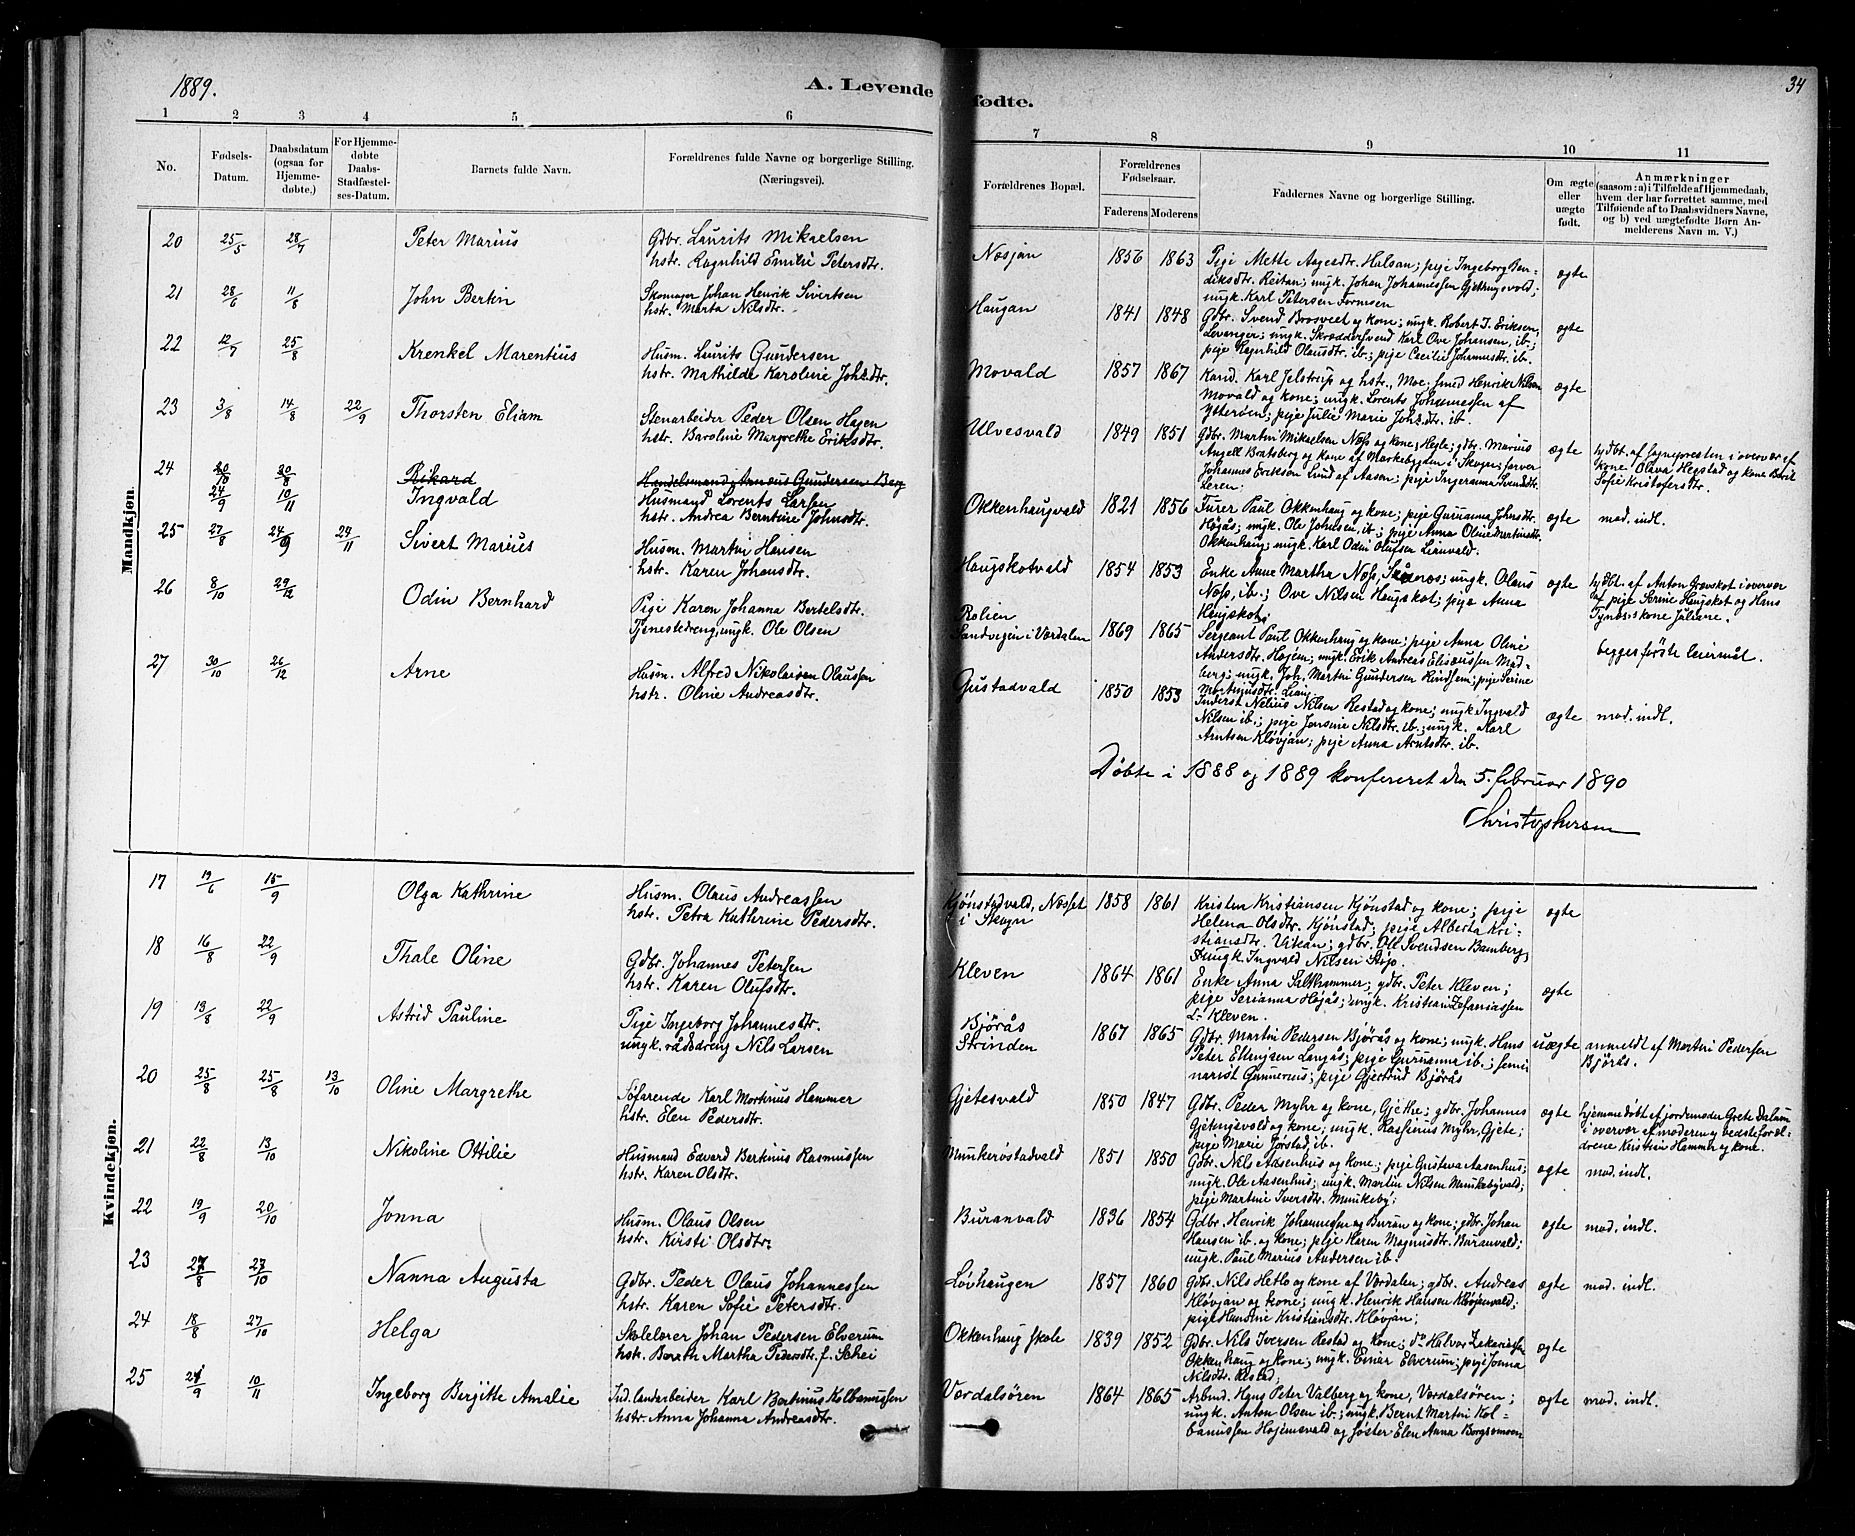 1889.
A. Levende
fødte.
34
1 2 3 4 5 6 7 8 9 10 11
No.
Fødsels-Datum.
Daabsdatum (ogsaa for Hjemme-døbte.)
For Hjemme-døbte Daabs-Stadfæstel-ses-Datum.
Barnets fulde Navn.
Forældrenes fulde Navne og borgerlige Stilling. (Næringsvei.)
Forældrenes Bopæl.
Forældrenes Fødselsaar.
Faderens Moderens
Faddernes Navne og borgerlige Stilling.
Om ægte eller uægte født.
Anmærkninger
(saasom: a) i Tilfælde af Hjemmedaab,
hvem der har forrettet samme, med
Tilføiende af to Daabsvidners Navne,
og b) ved uægtefødte Børn An-
melderens Navn m. V.)
Mandkjøn.
20 25/5 28/7 Peter Marius
Gdbr. Laurits Mikaelsen
hstr. Ragnhild Emilie Petersdtr.
Nosjan 1856 1863
Pige Mette Aagesdtr. Halsan; pige Ingeborg Ben-
diksdtr. Reitan; ungk. Johan Johannessen Gjetingsvold;
ungk. Karl Petersen Formsen
ægte
21 28/6 11/8 John Bertin
Skomager Johan Henrik Sivertsen
hstr. Marta Nilsdtr.
Haugan 1841 1848
Gdbr. Svend Brosveet og kone; ungk. Robert I. Eriksen,
Levanger; ungk. Skræddersvend Karl Ove Johansen, ib.;
pige Ragnhild Olausdtr. ib.; pige Cecilie Johannisdtr. ib.
ægte
22 12/7 25/8 Krenkel Marentius
Husm. Laurits Gundersen
hstr. Mathilde Karoline Johsdtr.
Movald 1857 1867
Kand. Karl Jelstrup og hstr., Moe; smed Henrik Nilsen
Movald og kone; ungk. Lorents Johannessen af
Ytterøen; pige Julie Marie Johsdtr. ib.
ægte
23 3/8 14/8 22/9 Thorsten Eliam
Stenarbeider Peder Olsen Hagen
hstr. Baroline Margrethe Eriksdtr.
Ulvesvald 1849 1851
Gdbr. Martin Mikaelsen Noss og kone, Hegle; gdbr. Marius
Angell Bratsberg og kone af Markebygden i Skogn; farver
Johannes Eriksen Lund af Aasen; pige Ingeranna Svendsdtr.
Leren;
ægte
hjdbt. af sognepresten i overvær af
kone Olava Hegstad og kone Berit
Sofie Kristofersdtr.
24 20/10 20/8 Rikard
Handelsmand Arnæus Gundersen Berg
24/9 10/11 Ingvald
Husmand Lorents Larsen
hstr. Andrea Berntine Johnsdtr.
Okkenhaugvald 1821 1856
Furer Paul Okkenhaug og kone; pige Gurianna Johnsdtr.
Højås; ungk. Ole Johnsen, ib.; pige Anna Oline Martinsdtr.
Okkenhaug; ungk. Karl Odin Olufsen Lianvald.
ægte mod. indl.
25 27/8 24/9 24/11 Sivert Marius
Husm. Martin Hansen
hstr. Karen Johansdtr.
Haugskotvald 1854 1853
Enke Anne Martha Noss, Skånes; ungk. Olaus
Noss, ib.; Ove Nilsen Haugskot; pige Anna
Haugskot;
ægte
hjdbt. af Anton Grevskot i overvær
af pige Serine Haugskot og Hans
Tynæs's kone Juliane.
26 8/10 29/12 Odin Bernhard
Pige Karen Johanna Bertelsdtr.
Tjenestedreng, ungk. Ole Olsen
Rolien
Sandvigen i Værdalen 1869 1865
Sergeant Paul Okkenhaug og kone; pige Anna Oline
Andersdtr. Højem; ungk. Erik Andreas Elisæussen Mad-
berg; ungk. Joh. Martin Gundersen Hindsem; pige Serine
Mortinusdtr. Liang
begges første leiermål.
27 30/10 26/12 Arne
Husm. Alfred Nikolaisen Olaussen
hstr. Oline Andreasdtr.
Gustadvald 1850 1853
Inderst Nelius Nilsen Restad og kone; ungk. Ingvald
Nilsen ib.; pige Jensine Nilsdtr. ib.; ungk. Karl
Arntsen Kløvjan; pige Anna Arntsdtr. ib.
ægte mod. indl.
Døbte i 1888 og 1889 konfereret den 5. februar 1890
Christophersen
Kvindekjøn.
17 19/6 15/9 Olga Kathrine
Husm. Olaus Andreassen
hstr. Petra Kathrine Pedersdtr.
Kjønstadvald, Nesset
i Skogn 1858 1861
Kristen Kristiansen Kjønstad og kone; pige
Helena Olsdtr. Kjønstad; pige Alberta Kri-
stiansdtr. Vikan; gdbr. Ole Svendsen Bamberg,
ungk. Ingvald Nilsen Støp.
ægte
18 16/8 22/9 Thale Oline
Gdbr. Johannes Petersen
hstr. Karen Olufsdtr.
Kleven 1864 1861
Enke Anna Salthammer; gdbr. Peter Kleven;
pige Serianna Højås; ungk. Kristian Zefaniassen
Kleven.
ægte
19 13/8 22/9 Astrid Pauline
Pige Ingeborg Johannesdtr.
ungk. rådsdreng Nils Larsen
Bjørås
Strinden 1867 1865
Gdbr. Martin Pedersen Bjørås og kone; ungk. Hans
Peter Ellingsen Langås; pige Gurianna ib.; semi-
narist Gunnerius; pige Gjertrud Bjørås
uægte
anmeldt af Martin Pedersen
Bjørås.
20 25/8 25/8 13/10 Oline Margrethe
Søfarende Karl Mortinus Hammer
hstr. Elen Pedersdtr.
Gjetesvald 1850 1847
Gdbr. Peder Myhr og kone, Gjethe; gdbr. Johannes
Gjetingsvold og kone; ungk. Rasfinus Myhr, Gjete;
pige Marie Jørstad, ib.
ægte
hjemmedøbt af jordemoder Grete Dalum
i overvær af moderen og bedstefor ol-
drene Kristian Hammer og kone.
21 22/8 13/10 Nikoline Ottilie
Husmand Edvard Bertinus Rasmussen
hstr. Karen Olsdtr.
Munkerøstadvald 1851 1850
Gdbr. Nils Aasenhus og kone; pige Gustava Aasenhus;
ungk. Ole Aasenhus; ungk. Martin Nilsen Munkebyvald;
pige Martine Iversdtr. Munkeby;
ægte mod. indl.
22 19/9 20/10 Jonna
Husm. Olaus Olsen
hstr. Kirsti Olsdtr.
Buranvald 1836 1854
Gdbr. Henrik Johannesen Buran og kone; gdbr. Johan
Hansen ib. og kone; pige Karen Magnusdtr. Buranvald;
ungk. Paul Marius Andersen ib.
ægte mod. indl.
23 27/8 27/10 Nanna Augusta
Gdbr. Peder Olaus Johannessen
hstr. Karen Sofie Petersdtr.
Løvhaugen 1857 1860
Gdbr. Nils Hetlo og kone af Værdalen; gdbr. Andreas
Kløvjan og kone; ungk. Henrik Hansen Kløvjanvald;
pige Hansine Kristiansdtr. Kløvjan;
ægte mod. indl.
24 18/8 27/10 Helga
Skolelærer Johan Pedersen Elverum
hstr. Berath Martha Pedersdtr. f. Schei
Okkenhaug skole 1839 1852
Gdbr. Nils Iversen Restad og kone; do Halvor Zakariassen
Okkenhaug og kone; ungk. Einar Elverum; pige Jonna
Nilsdtr. Restad;
ægte
25 24/9 10/11 Ingeborg Bergitte Amalie
Ind. landarbeider Karl Bertinus Kolbanussen
hstr. Anna Johanna Andreasdtr.
Værdalsøren 1864 1865
Arbmd. Hans Peter Valberg og kone, Værdalsøren;
ungk. Anton Olsen ib.; ungk. Bernt Martin Kol-
banussen Højemsvald og søster Elen Anna Borgsmoen
ægte mod. indl.